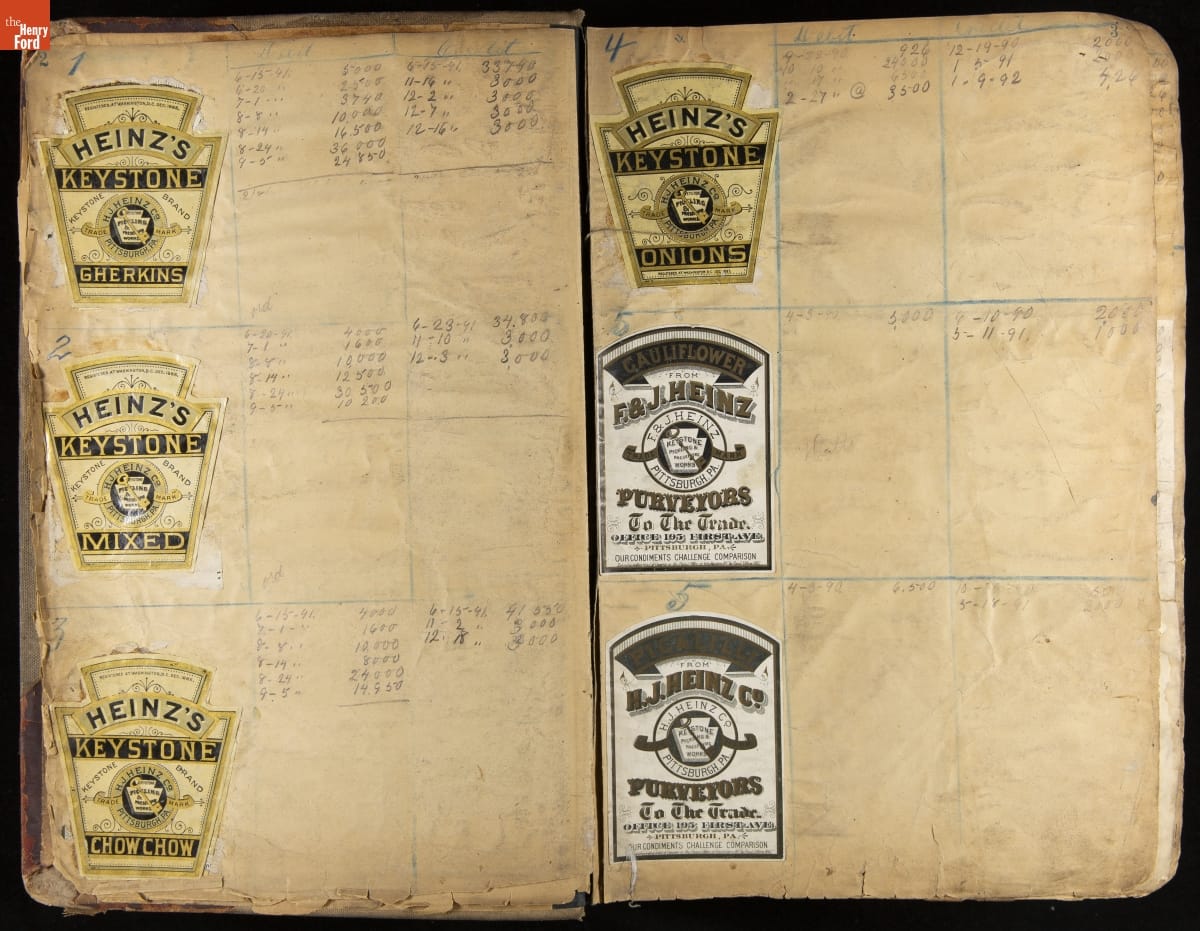 the
Henry
Ford
2
1
Debit
Credit
6-15-91 5000
6-20 " 2500
7-1 " " 3740
8-8 " 10,000
8-14 " 16,500
8-24 " 36 000
9-5 " 24 850
6-15-91 33790
11-16 " 3000
12-2 " 3000
12-7 " 3000
12-16 " 3000
REGISTERED AT WASHINGTON, D.C. DEC. 1883.
HEINZ'S
KEYSTONE
KEYSTONE BRAND
H.J. HEINZ CO.
KEYSTONE
PICKLING
&
PRESERVING
WORKS
TRADE MARK
PITTSBURGH, PA.
GHERKINS
ord
2
6-20-91 4000
7-1 " 1600
8-8 " 10,000
8-14 " 12 500
8-24 " 30 500
9-5 " 10 200
6-23-91 34.800
11-10 " 3,000
12-3 " 3,000
REGISTERED AT WASHINGTON, D.C. DEC. 1883.
HEINZ'S
KEYSTONE
KEYSTONE BRAND
H.J. HEINZ CO.
TRADE MARK
PITTSBURGH, PA.
MIXED
ord
3
6-15-91 4000
7-1 " 1600
8-8 " 10,000
8-14 " 8000
8-24 " 24000
9-5 " 14.950
6-15-91 41 550
11-2 " 3000
12-18 " 3000
REGISTERED AT WASHINGTON, D.C. DEC. 1883.
HEINZ'S
KEYSTONE
KEYSTONE BRAND
H.J. HEINZ CO.
TRADE MARK
PITTSBURGH, PA.
CHOW CHOW
3
4
Debit
Credit
926
10 10 " 24000
17 " 6500
2-27 " @ 3500
12-19-90 2000
1 5-91
1-9-92 4,26
HEINZ'S
KEYSTONE
H.J. HEINZ CO.
TRADE MARK
PITTSBURGH, PA.
ONIONS
REGISTERED AT WASHINGTON D.C. DEC. 1883.
5
4-3-90 3,000
9-10-90 2000
5-11-91 1000
CAULIFLOWER
FROM
F. & J. HEINZ
F. & J. HEINZ
KEYSTONE
PICKLING &
PRESERVING
WORKS
TRADE MARK
PITTSBURGH, PA.
PURVEYORS
To The Trade.
OFFICE 195 FIRST AVE.
PITTSBURGH, PA.
OUR CONDIMENTS CHALLENGE COMPARISON
5
4-3-90 6,500
5-18-91 2000
FROM
H.J. HEINZ CO.
H.J. HEINZ CO.
KEYSTONE
PICKLING &
PRESERVING
WORKS
PITTSBURGH, PA.
PURVEYORS
To The Trade.
OFFICE 195 FIRST AVE.
PITTSBURGH, PA.
OUR CONDIMENTS CHALLENGE COMPARISON